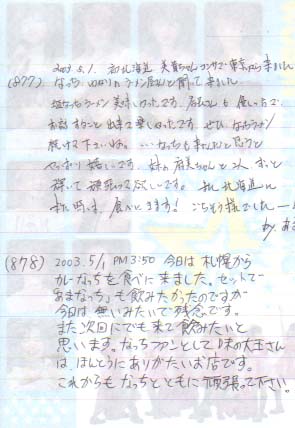 2003. 5. 1. 初北海道 美貴ちゃんコンサで東京から来ました
(877) なっち ゆかりのラーメン屋さんと聞いて来ました。
塩なっちラーメン美味しかったです。店長さんも優しい方で、
お話することも出来て楽しかったです。ぜひ、なっちラーメン
続けて下さいね。…なっちも来たんだと思うと
やっぱり嬉しいです。妹の麻美ちゃんと2人 ずっと
頑張って欲しいです。私、北海道に
また 来た時は、食べにきます! ごちそう様でしたー!
by.
(878) 2003. 5/1 PM 3:50 今日は 札幌から
カレーなっちを食べに来ました。セットで
「あまなっち」も飲みたかったのですが
今日は無いみたいで残念です。
また次回にでも来て飲みたいと
思います。なっちファンとして「味の大王さん」
は、ほんとうにありがたいお店です。
これからもなっちとともに頑張って下さい。